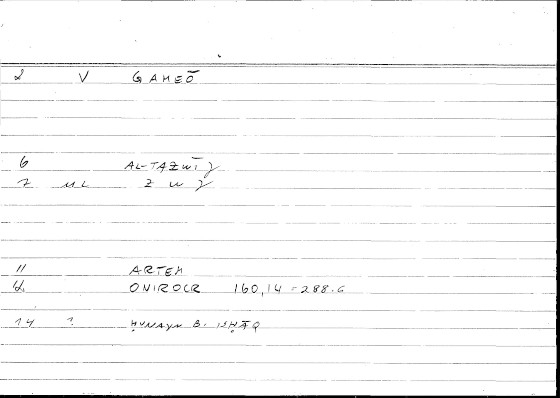 2 V GAMEŌ
6 AL-TAZWĪJ
7 ML Z W J
11 ARTEM
12 ONIROCR 160,14 = 288.6
14 1 ḤUNAYN B. ISḤĀQ